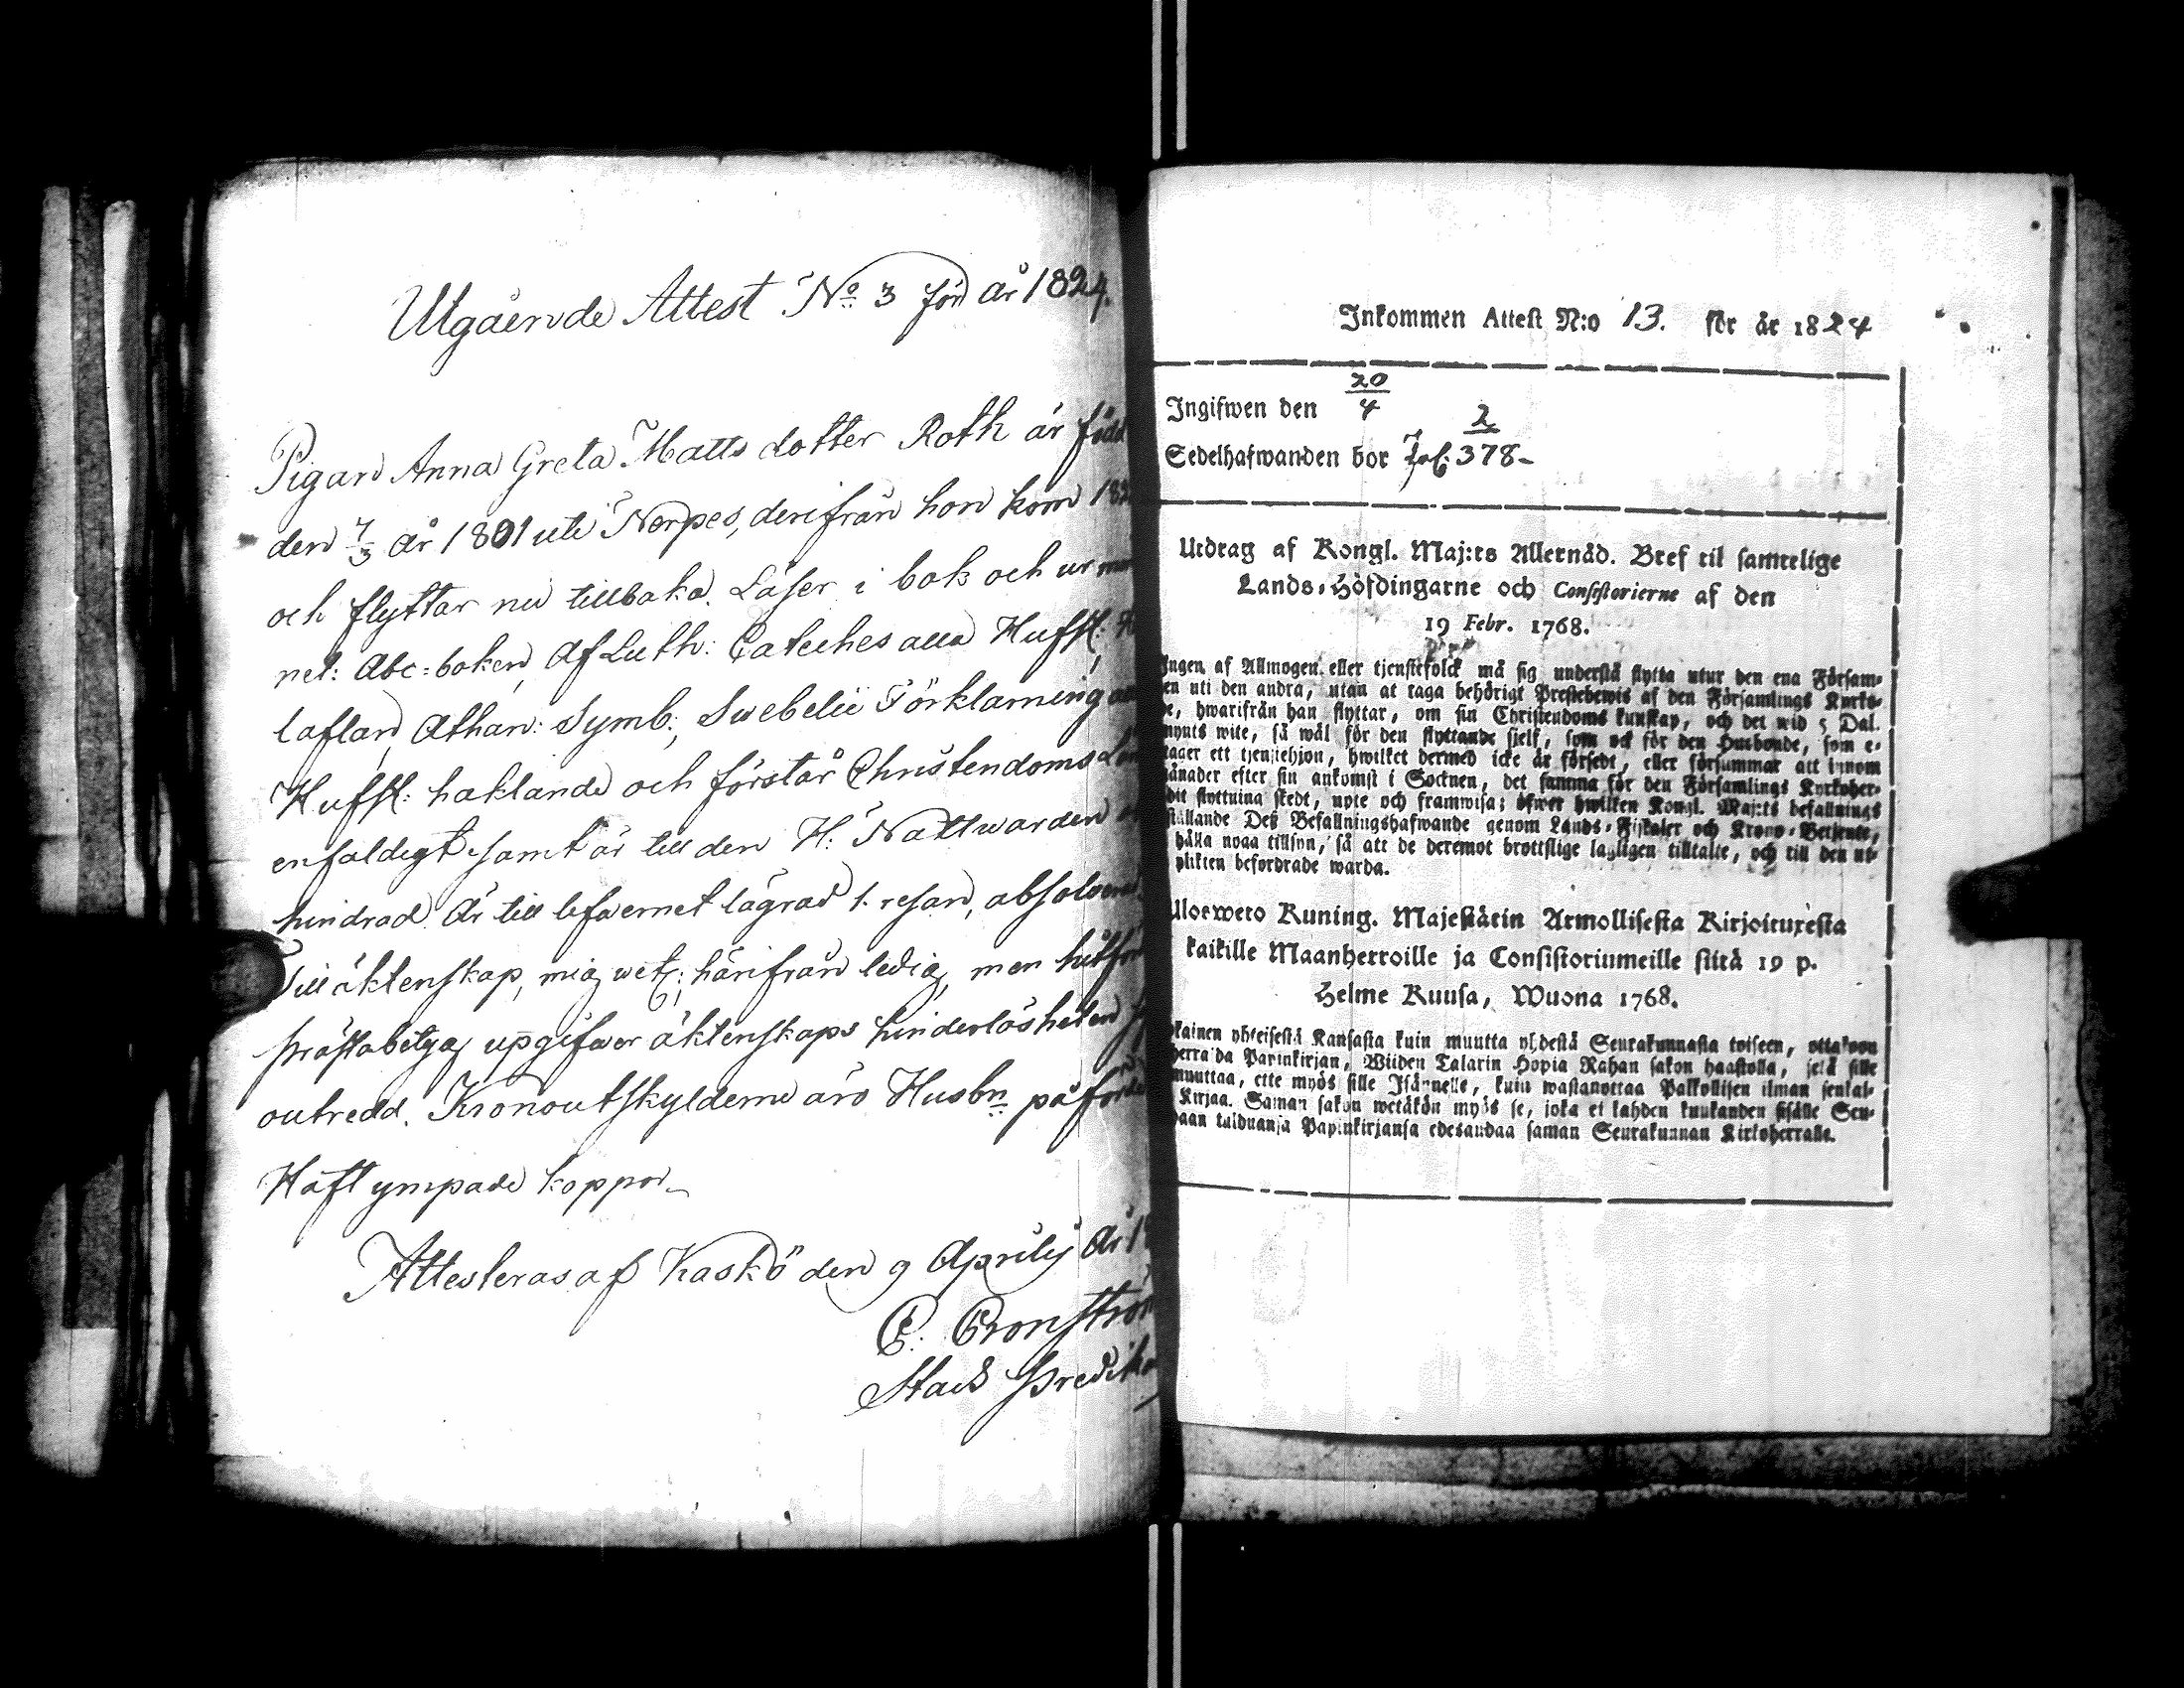 Utgående Attest No 3 för år 1824.
Pigan Anna Greta Matts dotter Roth är född
den 7/3 år 1801 uti Nerpes, derifrån hon kom
och flyttar nu tillbaka. Läser i bok och ur
net: Abc=boken, Af Luth: Cateches alla Hufst:
taflan, Athan: Symb:, Swebelii Förklaring
Hufst: haklande och förstår Christendoms
enfaldigt samt är till den H: Nattwarden
hindrad. Är till lefwernet lägrad 1. resan,
Till äktenskap, mig wet:; härifrån ledig, men
prästabetyg uppgifwer äktenskaps hinderlösheten
outredd. Kronoutskylderne äro Husbn
Haft ympade koppor
Attesteras af Kaskö den 9 Aprilis År
C: Cronström
Stads
Inkommen Attest N:o 13. för år 1824
Ingifwen den 20/4
Sedelhafwanden bor 378-
2
Utdrag af Kongl. Maj:ts Allernåd. Bref til samtelige
Lands-Höfdingarne och Consistorierne af den
19 Febr. 1768.
Ingen af Allmogen eller tjenstefolck må sig understå flytta utur den ena Försam-
en uti den andra, utan at taga behörigt Prestebewis af den Församlings Kyrko-
e, hwarifrån han flyttar, om sin Christendoms kunskap, och det wid 5 Dal.
mynts wite, så wäl för den flyttande sjelf, som ock för den Husbonde, som e-
tager ett tjenstehjon, hwilket dermed icke är försedt, eller försummar att innom
månader efter sin ankomst i Socknen, det samma för den Församlings Kyrkoher-
dit flyttning skedt, upte och framwisa; öfwer hwilken Kongl. Maj:ts befallnings
ställande Deß Befallningshafwande genom Lands-Fiskaler och Krono-Betjente,
hålla noga tillsyn, så att de deremot brottslige lagligen tilltalte, och till den ut-
plikten befordrade warda.
Ulosweto Kuning. Majestätin Armollisesta Kirjoituxesta
kaikille Maanherroille ja Consistoriumeille siitä 19 p.
Helme Kuusa, Wuona 1768.
kainen yhteisestä Kansasta kuin muutta yhdestä Seurakunnasta toiseen, ottakoon
herralda Papinkirjan, Wiiden Talarin Hopia Rahan sakon haastolla, sekä sille
muuttaa, ette myös sille Isännelle, kuin wastanottaa Palkollisen ilman senkal-
Kirjaa. Saman sakon wetäkön myös se, joka ei kahden kuukauden sisälle Seu-
taan tulduansa Papinkirjansa edesandaa saman Seurakunnan Kirkoherralle.